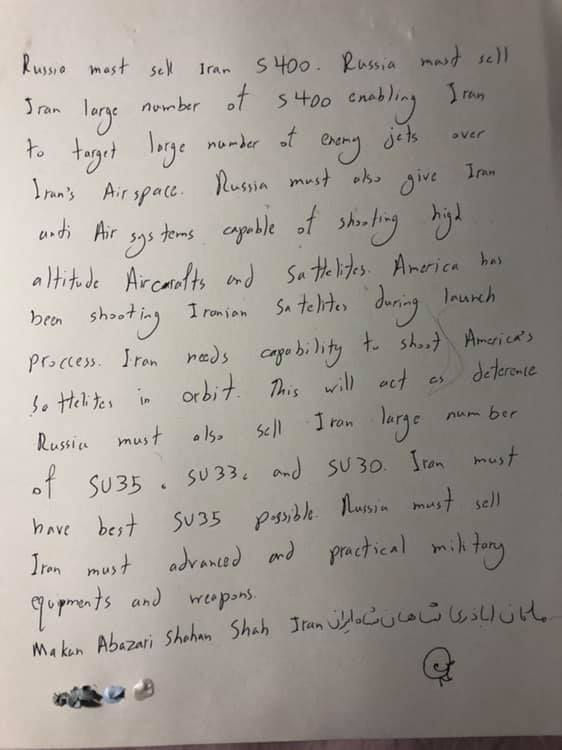 Russia mast sell Iran S400. Russia mast sell
Iran large number of S400 enabling Iran
to target large number of enemy jets over
Iran's Airspace. Russia must also give Iran
anti Air systems capable of shooting high
altitude Aircrafts and Sattelites. America has
been shooting Iranian Satelites during launch
proccess. Iran needs capability to shoot America's
Sattelites in orbit. This will act as deterence
Russia must also sell Iran large number
of SU35، SU33، and SU30. Iran must
have best SU35 possible. Russia must sell
Iran must advanced and practical military
equipments and weapons.
Makan Abazari Shahan Shah Iran ماکان اباذری شاهان شاه ایران